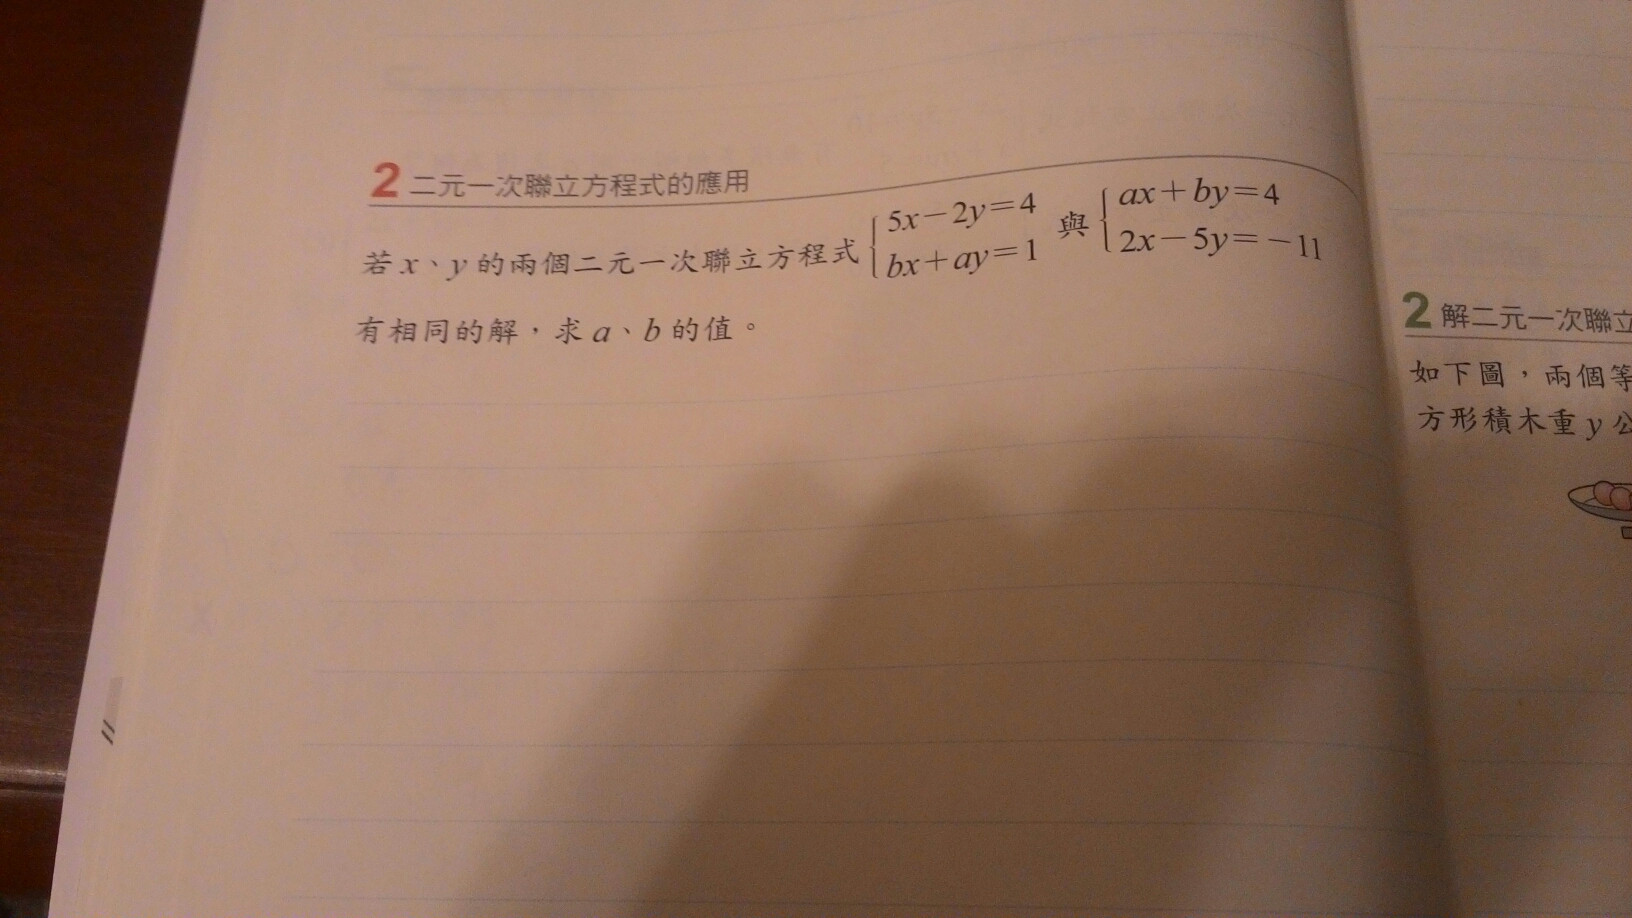 2 二元一次聯立方程式的應用
若 x、y 的兩個二元一次聯立方程式 { 5x－2y＝4 bx＋ay＝1 與 { ax＋by＝4 2x－5y＝－11
有相同的解，求 a、b 的值。
2 解二元一次聯立
如下圖，兩個等
方形積木重 y 公